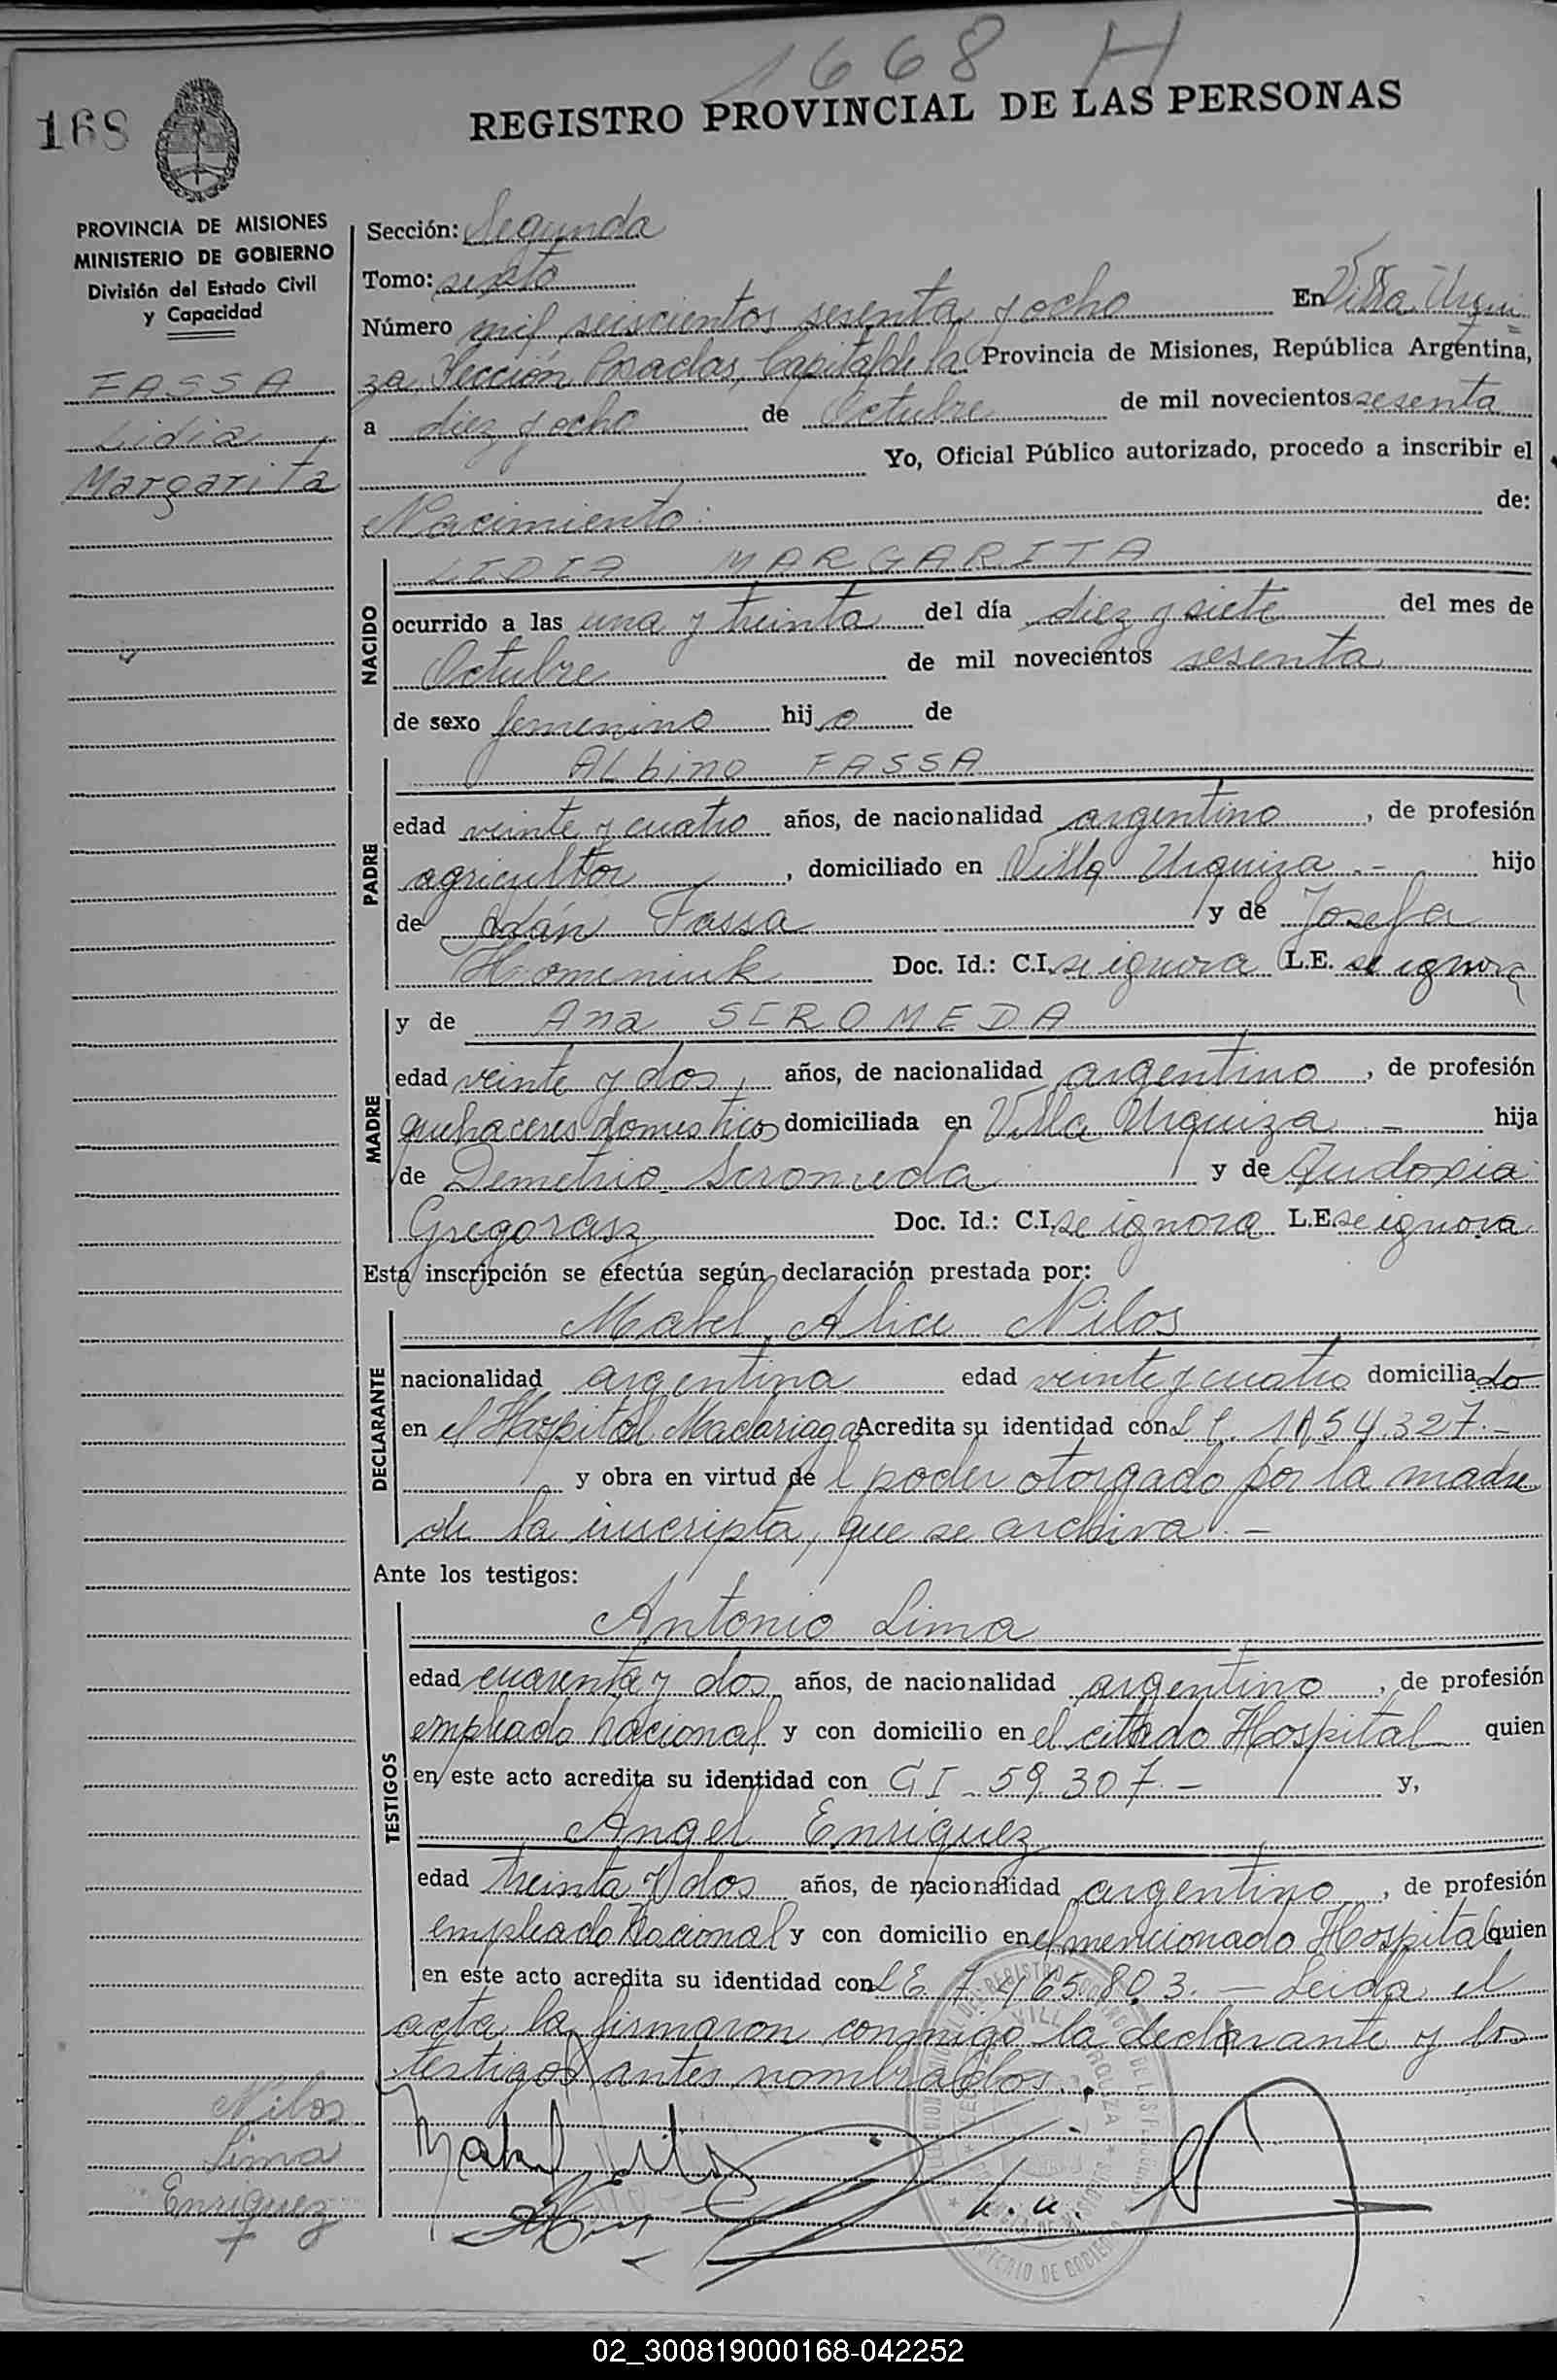 1668 H
168
REGISTRO PROVINCIAL DE LAS PERSONAS
PROVINCIA DE MISIONES
MINISTERIO DE GOBIERNO
División del Estado Civil
y Capacidad
FASSA
Lidia
Margarita
Sección: Segunda
Tomo: sexto
Número mil seiscientos sesenta y ocho En Villa Urqui=
za, Sección Posadas, Capital de la Provincia de Misiones, República Argentina,
a diez y ocho de Octubre de mil novecientos sesenta
Yo, Oficial Público autorizado, procedo a inscribir el
Nacimiento: de:
NACIDO
LIDIA MARGARITA
ocurrido a las una y treinta del día diez y siete del mes de
Octubre de mil novecientos sesenta
de sexo femenino hijo de
PADRE
ALbino FASSA
edad veinte y cuatro años, de nacionalidad argentino, de profesión
agricultor, domiciliado en Villa Urquiza.- hijo
de Adán Fassa y de Josefa
Homeniuk Doc. Id.: C.I. se ignora L.E. se ignora
MADRE
y de Ana SCROMEDA
edad veinte y dos, años, de nacionalidad argentino, de profesión
quehaceres domesticos domiciliada en Villa Urquiza.- hija
de Demetrio Scromeda y de Eudoxia
Gregorasz Doc. Id.: C.I. se ignora L.E. se ignora
Esta inscripción se efectúa según declaración prestada por:
DECLARANTE
Mabel Alice Nilos
nacionalidad argentina edad veinte y cuatro domiciliado
en el Hospital Madariaga Acredita su identidad con L C. 1.154.327.-
y obra en virtud de l poder otorgado por la madre
de la inscripta, que se archiva.-
Ante los testigos:
TESTIGOS
Antonio Lima
edad cuarenta y dos años, de nacionalidad argentino, de profesión
empleado nacional y con domicilio en el citado Hospital quien
en este acto acredita su identidad con C I - 59.307.- y,
Angel Enriquez
edad treinta y dos años, de nacionalidad argentino, de profesión
empleado Nacional y con domicilio en el mencionado Hospital quien
en este acto acredita su identidad con L E. 7.465.803.- Leida el
acta la firmaron conmigo la declarante y los
testigos antes nombrados.
Nilos
Lima
Enriquez
02_300819000168-042252